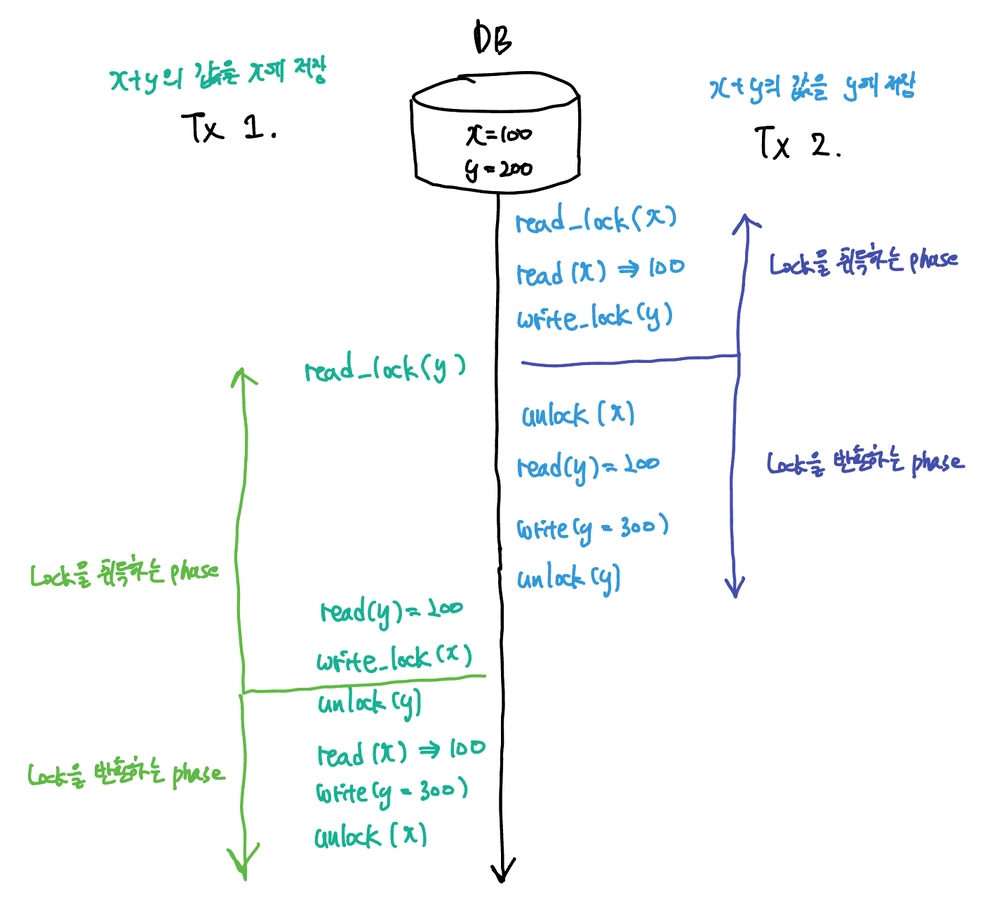 DB
x+y의 값을 x에 저장
Tx 1.
x=100
y=200
x+y의 값을 y에 저장
Tx 2.
read_lock(x)
read(x) ⇒ 100
write_lock(y)
Lock을 취득하는 phase
read_lock(y)
unlock(x)
read(y)=200
write(y=300)
unlock(y)
Lock을 반환하는 phase
Lock을 취득하는 phase
read(y)=200
write_lock(x)
unlock(y)
read(x) ⇒ 100
write(y=300)
unlock(x)
Lock을 반환하는 phase